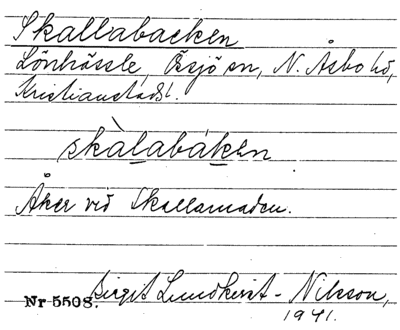 Skallabacken
Lönhässle, Össjö sn, N. Åsbo hd,
Kristianstads l.
skàlabáken
Åker vid Skallamaden.
Birgit Lundkvist-Nilsson,
Nr 5508.
1941.